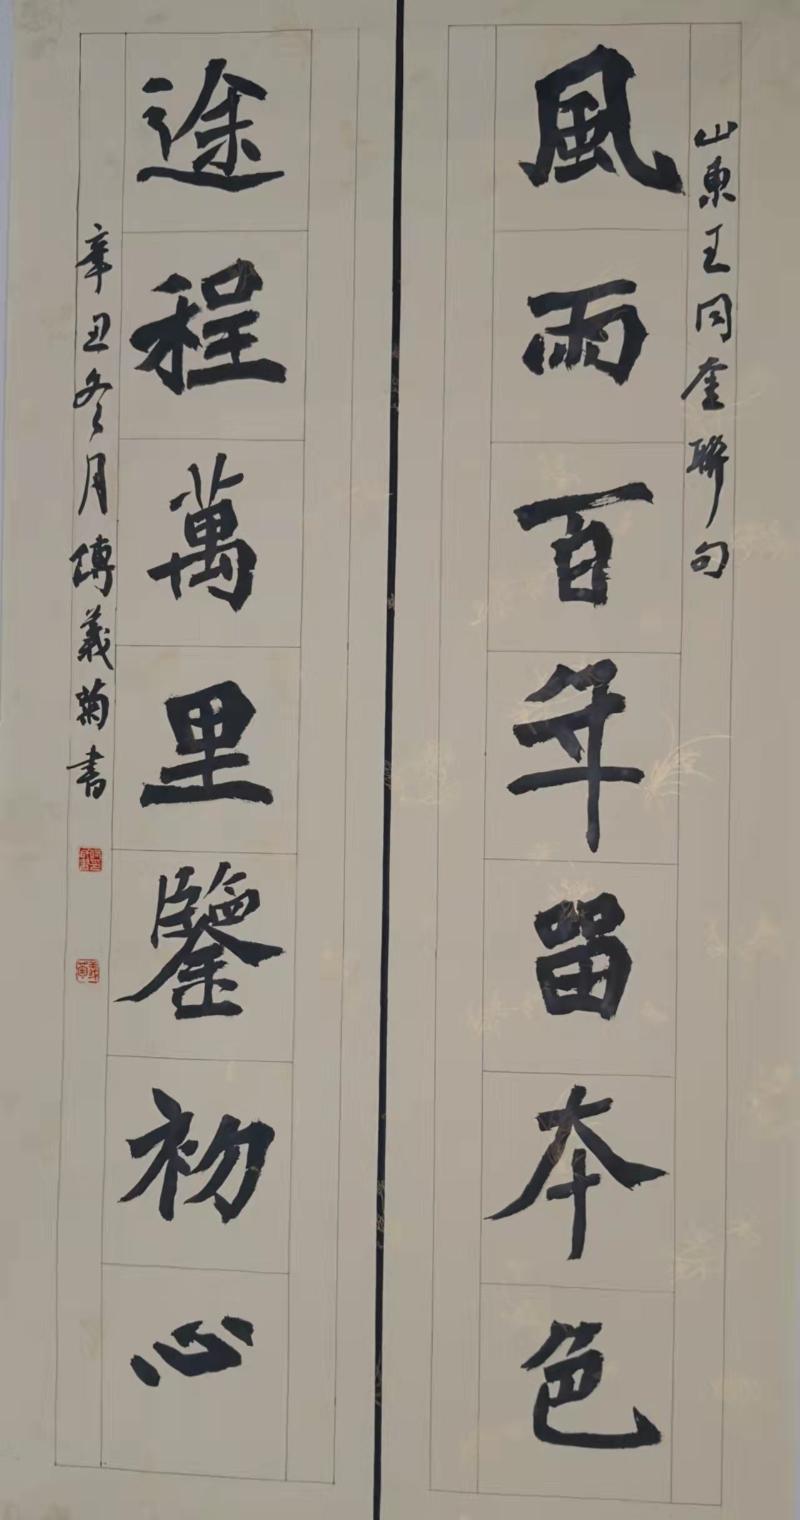 山東王同奎聯句
風雨百年留本色
途程萬里鑒初心
辛丑冬月傅義菊書